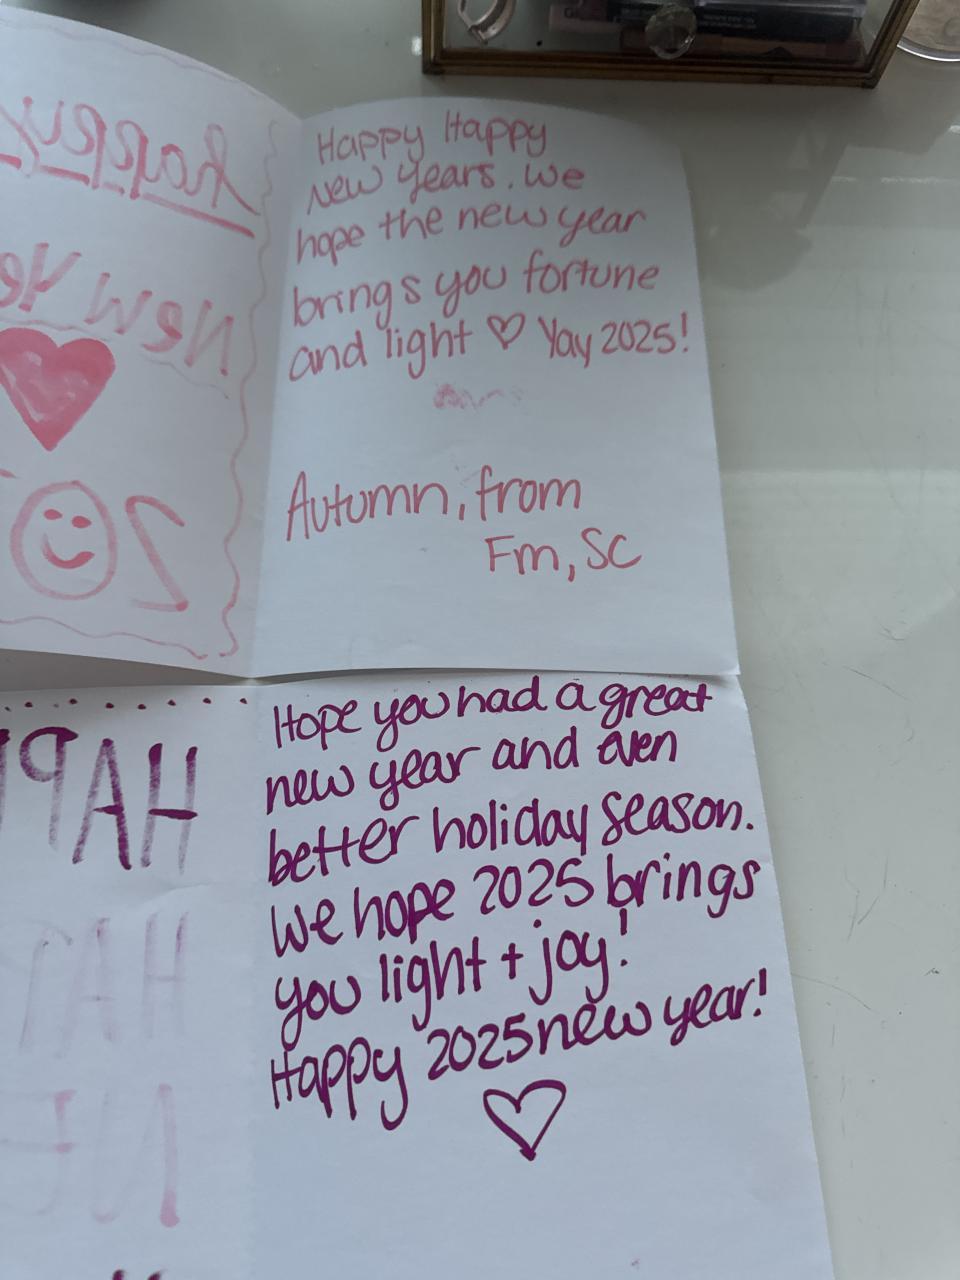 happy
New Ye
20
Happy Happy
New Years. We
hope the new year
brings you fortune
and light ♡ Yay 2025!
Autumn, from
Fm, SC
HAPP
HAP
NE
Hope you had a great
new year and even
better holiday season.
We hope 2025 brings
you light + joy!
Happy 2025 new year!
♡